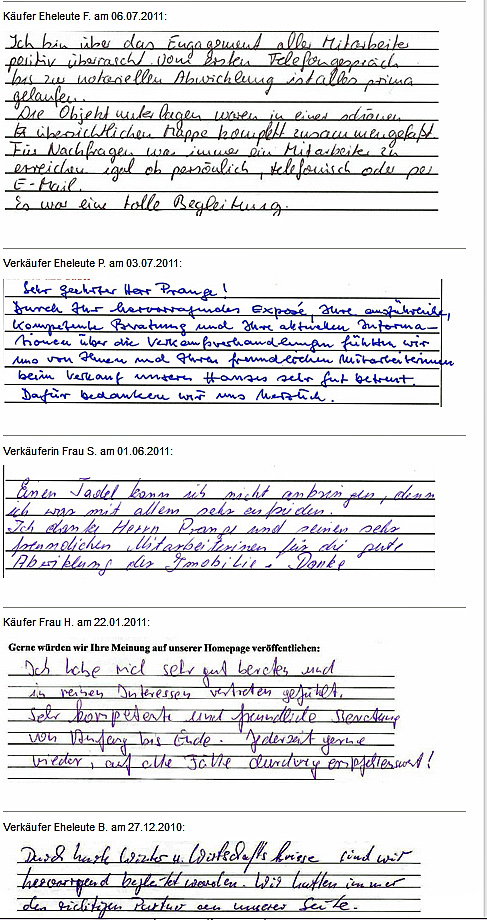 Käufer Eheleute F. am 06.07.2011:
Ich bin über das Engagement aller Mitarbeiter
positiv überrascht. Vom ersten Telefongespräch
bis zur notariellen Abwicklung ist alles prima
gelaufen.
Die Objektunterlagen waren in einer schönen
übersichtlichen Mappe komplett zusammengefaßt.
Für Nachfragen war immer ein Mitarbeiter zu
erreichen egal ob persönlich, telefonisch oder per
E-Mail.
Es war eine tolle Begleitung.
Verkäufer Eheleute P. am 03.07.2011:
Sehr geehrter Herr Prange!
Durch Ihr hervorragendes Exposé, Ihre ausführliche,
kompetente Beratung und Ihre aktuellen Informa-
tionen über die Verkaufsverhandlungen fühlten wir
uns von Ihnen und Ihren freundlichen Mitarbeiterinnen
beim Verkauf unseres Hauses sehr gut betreut.
Dafür bedanken wir uns herzlich.
Verkäuferin Frau S. am 01.06.2011:
Einen Tadel kann ich nicht anbringen, denn
ich war mit allem sehr zufrieden.
Ich danke Herrn Prange und seinen sehr
freundlichen Mitarbeiterinen für die gute
Abwiklung der Imobilie. Danke
Käufer Frau H. am 22.01.2011:
Gerne würden wir Ihre Meinung auf unserer Homepage veröffentlichen:
Ich habe mich sehr gut beraten und
in meinen Interessen vertreten gefühlt.
Sehr kompetente und freundliche Beratung
von Anfang bis Ende. Jederzeit gerne
wieder, auf alle Fälle empfehlenswert!
Verkäufer Eheleute B. am 27.12.2010:
Durch harte Winter u. Wirtschaftskrise sind wir
hervorragend begleitet worden. Wir hatten immer
den richtigen Partner an unserer Seite.